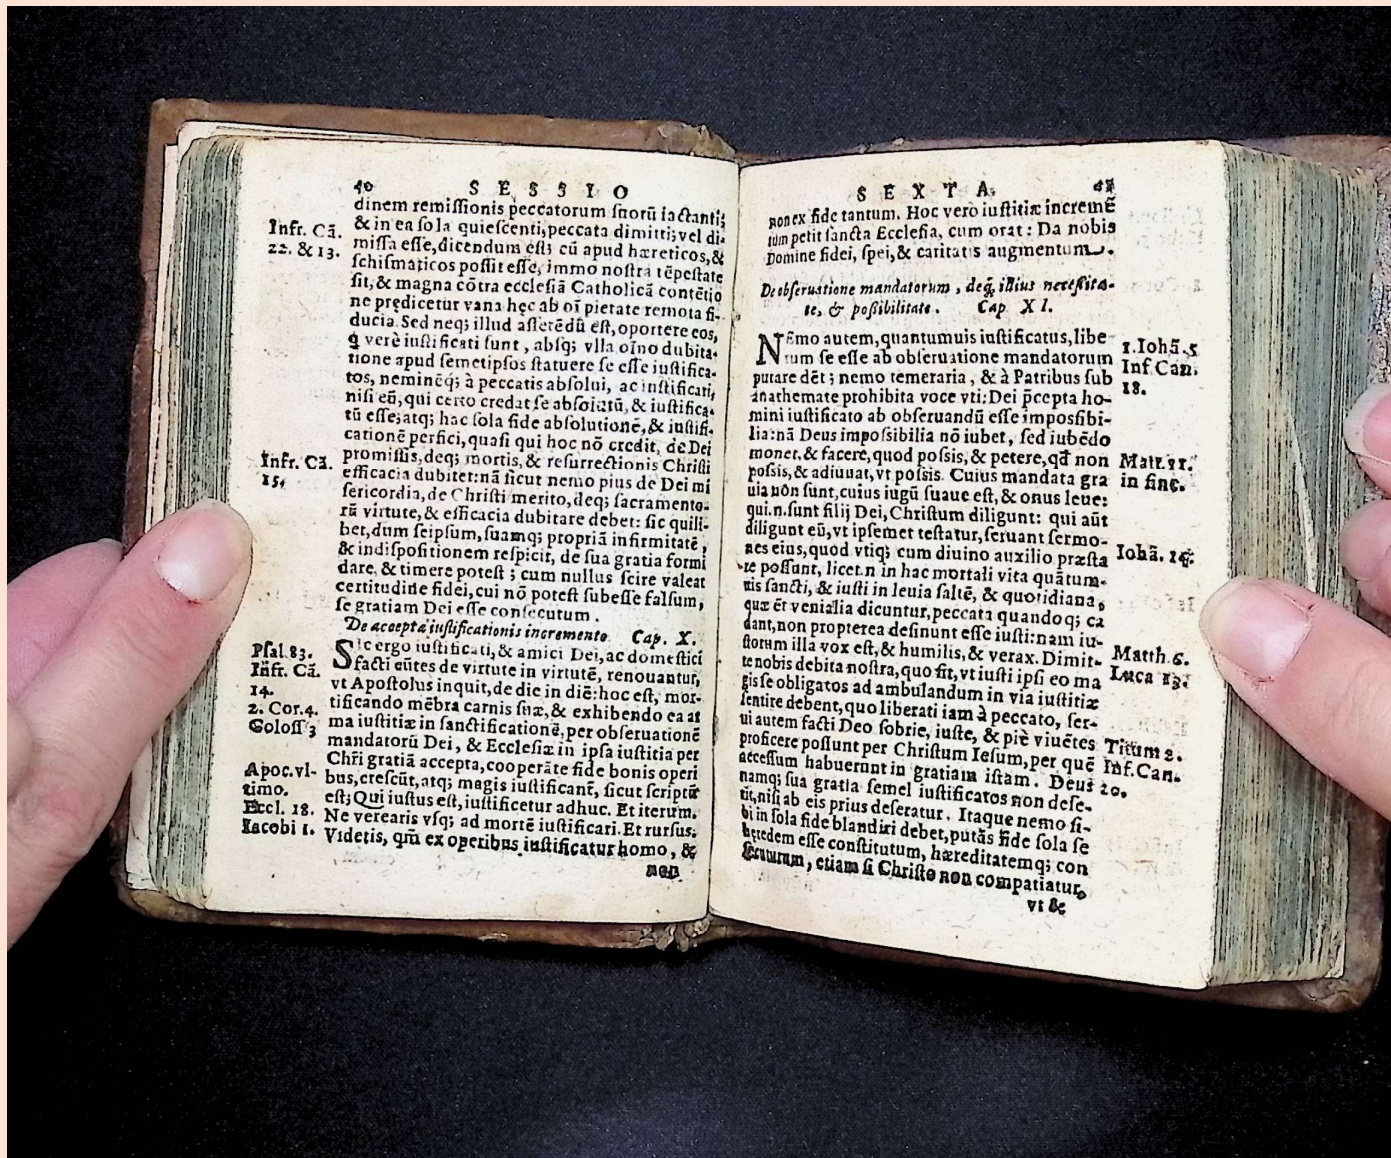 40 SESSIO
dinem remissionis peccatorum suorũ iactanti;
& in ea sola quiescenti, peccata dimitti; vel di-
missa esse, dicendum est; cũ apud hæreticos, &
schismaticos possit esse, immo nostra tẽpestate
sit, & magna cõtra ecclesiã Catholicã contẽtio
ne prędicetur vana hęc ab oĩ pietate remota fi-
ducia. Sed neq; illud asserẽdũ est, oportere eos,
q̃ verè iustificati sunt, absq; vlla oĩno dubita-
tione apud semetipsos statuere se esse iustifica-
tos, neminẽq; à peccatis absolui, ac iustificari,
nisi eũ, qui certo credat se absolutũ, & iustifica-
tũ esse; atq; hac sola fide absolutionẽ, & iustifi-
cationẽ perfici, quasi qui hoc nõ credit, de Dei
promissis, deq; mortis, & resurrectionis Christi
efficacia dubitet: nã sicut nemo pius de Dei mi
sericordia, de Christi merito, deq; sacramento-
rũ virtute, & efficacia dubitare debet: sic quili-
bet, dum seipsum, suamq; propriã infirmitatẽ,
& indispositionem respicit, de sua gratia formi
dare, & timere potest; cum nullus scire valeat
certitudine fidei, cui nõ potest subesse falsum,
se gratiam Dei esse consecutum.
De accepta iustificationis incremento Cap. X.
Sic ergo iustificati, & amici Dei, ac domestici
facti eũtes de virtute in virtutẽ, renouantur,
vt Apostolus inquit, de die in diẽ: hoc est, mor-
tificando mẽbra carnis suæ, & exhibendo ea ar
ma iustitiæ in sanctificationẽ, per obseruationẽ
mandatorũ Dei, & Ecclesiæ in ipsa iustitia per
Chr̃i gratiã accepta, cooperãte fide bonis operi
bus, crescũt, atq; magis iustificanĩ, sicut scriptũ
est; Qui iustus est, iustificetur adhuc. Et iterum.
Ne verearis vsq; ad mortẽ iustificari. Et rursus.
Videtis, qm̃ ex operibus iustificatur homo, &
non
Infr. Cã.
22. & 13.
Infr. Cã.
15.
Psal. 83.
Infr. Cã.
14.
2. Cor. 4.
Coloss 3
Apoc. vl-
timo.
Eccl. 18.
Iacobi 1.
SEXTA. 41
non ex fide tantum. Hoc vero iustitiæ incremẽ
tum petit sancta Ecclesia, cum orat: Da nobis
Domine fidei, spei, & caritatis augmentum.
De obseruatione mandatorum, deq; illius necessita-
te, & possibilitate. Cap XI.
NEmo autem, quantumuis iustificatus, libe
rum se esse ab obseruatione mandatorum
putare dẽt; nemo temeraria, & à Patribus sub
anathemate prohibita voce vti: Dei p̃cepta ho-
mini iustificato ab obseruandũ esse impossibi-
lia: nã Deus impossibilia nõ iubet, sed iubẽdo
monet, & facere, quod possis, & petere, qd̃ non
possis, & adiuuat, vt possis. Cuius mandata gra
uia non sunt, cuius iugũ suaue est, & onus leue:
qui. n. sunt filij Dei, Christum diligunt: qui aũt
diligunt eũ, vt ipsemet testatur, seruant sermo-
nes eius, quod vtiq; cum diuino auxilio præsta
re possunt, licet. n in hac mortali vita quãtum-
uis sancti, & iusti in leuia saltẽ, & quotidiana,
quæ ẽt venialia dicuntur, peccata quandoq; ca
dant, non propterea desinunt esse iusti: nam iu-
storum illa vox est, & humilis, & verax. Dimit-
te nobis debita nostra, quo fit, vt iusti ipsi eo ma
gis se obligatos ad ambulandum in via iustitiæ
sentire debent, quo liberati iam à peccato, ser-
ui autem facti Deo sobrie, iuste, & piè viuẽtes
proficere possunt per Christum Iesum, per quẽ
accessum habuerunt in gratiam istam. Deus
namq; sua gratia semel iustificatos non dese-
rit, nisi ab eis prius deseratur. Itaque nemo si-
bi in sola fide blandiri debet, putãs fide sola se
heredem esse constitutum, hæreditatemq; con
secuturum, etiam si Christo non compatiatur,
vt &
1. Iohã. 5
Inf. Can.
18.
Matt. 11.
in fine.
Iohã. 14.
Matth. 6.
Luca 13.
Titum 2.
Inf. Can.
20.